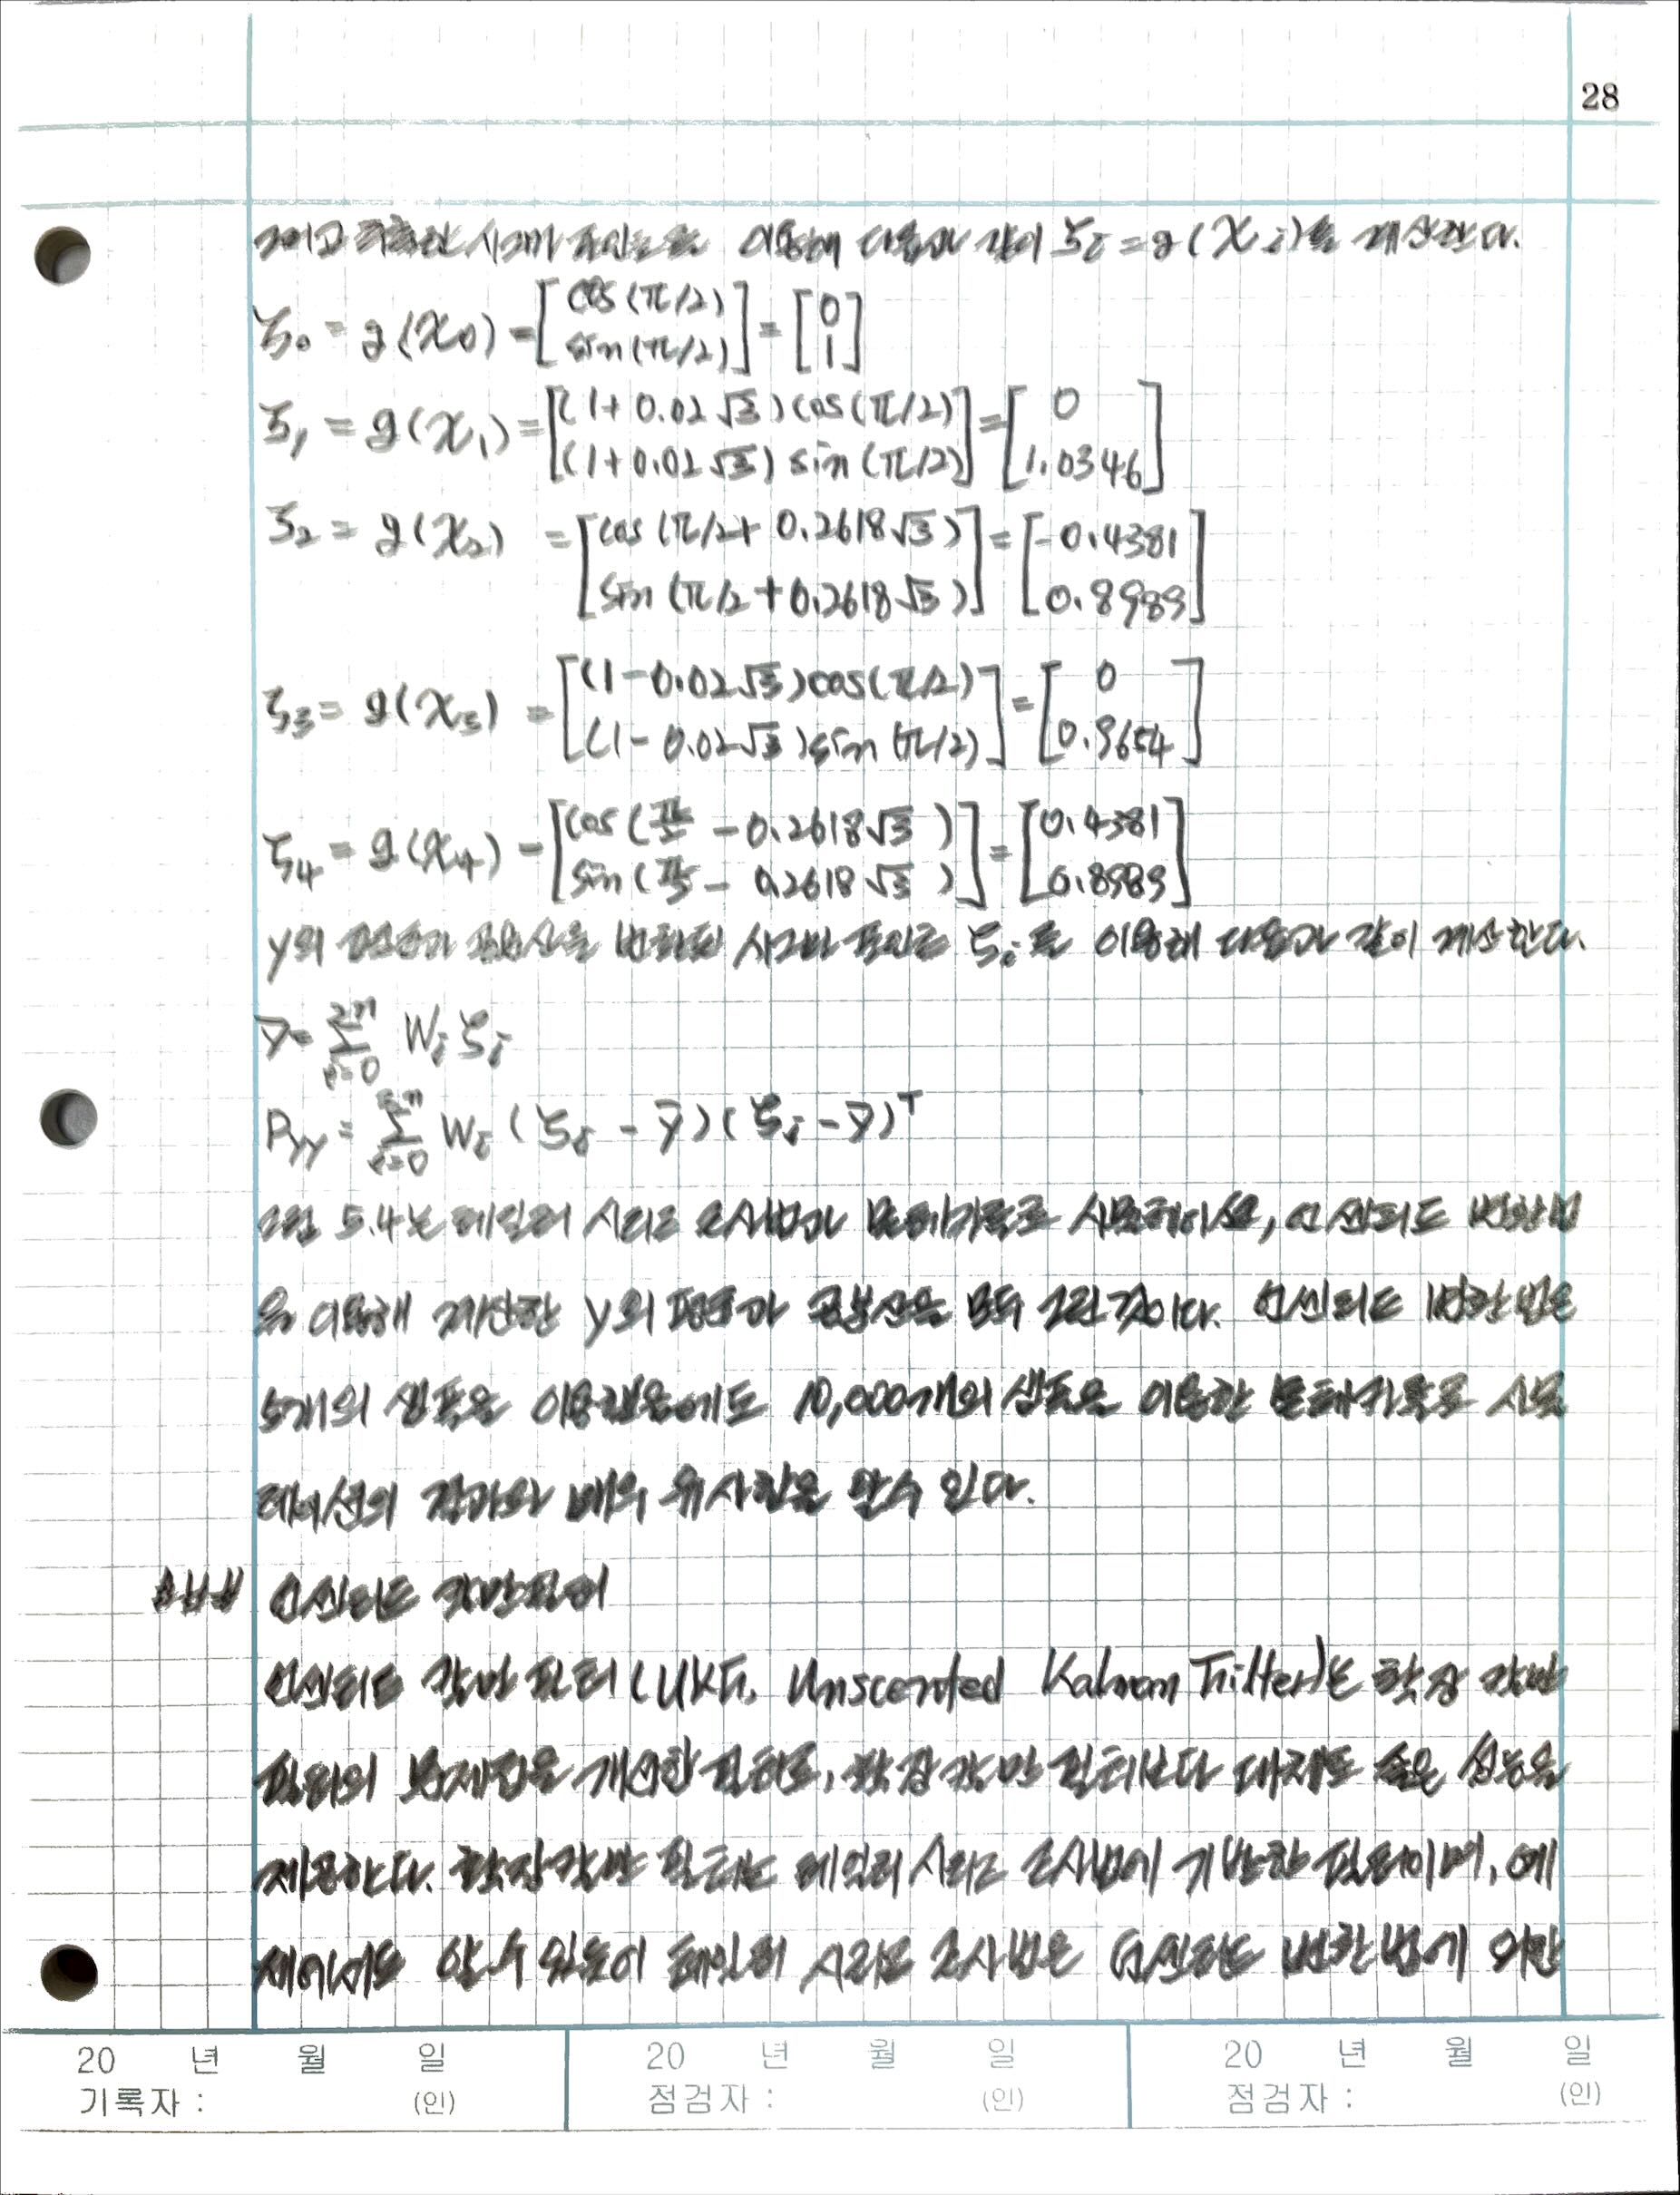 28
그리고 추출한 시그마 포인트를 이용해 다음과 같이 ζi = g(χi)를 계산한다.
ζ0 = g(χ0) = [cos(π/2) sin(π/2)] = [0 1]
ζ1 = g(χ1) = [(1+0.02√3)cos(π/2) (1+0.02√3)sin(π/2)] = [0 1.0346]
ζ2 = g(χ2) = [cos(π/2+0.2618√3) sin(π/2+0.2618√3)] = [-0.4381 0.8989]
ζ3 = g(χ3) = [(1-0.02√3)cos(π/2) (1-0.02√3)sin(π/2)] = [0 0.9654]
ζ4 = g(χ4) = [cos(π/2 - 0.2618√3) sin(π/2 - 0.2618√3)] = [0.4381 0.8989]
y의 평균과 공분산을 변환된 시그마 포인트 ζi를 이용해 다음과 같이 계산한다.
ȳ = Σ(i=0..2n) Wi ζi
Pyy = Σ(i=0..2n) Wi (ζi - ȳ)(ζi - ȳ)ᵀ
그림 5.4는 테일러 시리즈 근사법과 몬테카를로 시뮬레이션, 언센티드 변환법
을 이용해 계산한 y의 평균과 공분산을 모두 그린 것이다. 언센티드 변환법은
5개의 샘플을 이용했음에도 10,000개의 샘플을 이용한 몬테카를로 시뮬
레이션의 결과와 매우 유사함을 알 수 있다.
### 언센티드 칼만필터
언센티드 칼만 필터(UKF, Unscented Kalman Filter)는 확장 칼만
필터의 문제점을 개선한 필터로, 확장 칼만 필터보다 대체로 좋은 성능을
제공한다. 확장 칼만 필터는 테일러 시리즈 근사법에 기반한 필터이며, 예
제에서도 알 수 있듯이 테일러 시리즈 근사법은 언센티드 변환법에 의한
20 년 월 일 20 년 월 일 20 년 월 일
기록자 : (인) 점검자 : (인) 점검자 : (인)